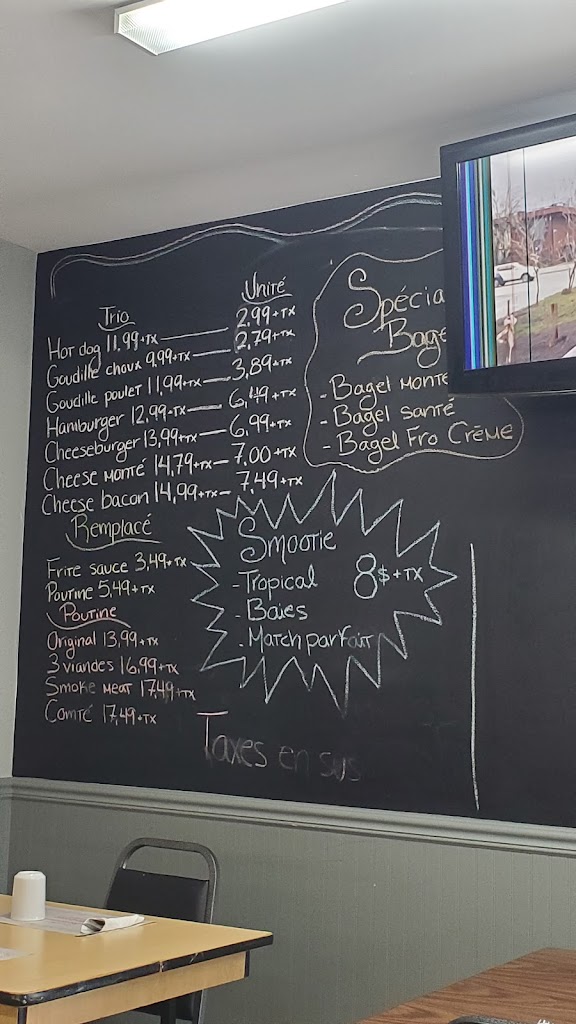 Trio Unité
Hot dog 11,99+TX — 2,99+TX
Goudille choux 9,99+TX — 2,79+TX
Goudille poulet 11,99+TX — 3,89+TX
Hamburger 12,99+TX — 6,49+TX
Cheeseburger 13,99+TX — 6,99+TX
Cheese monté 14,79+TX — 7,00+TX
Cheese bacon 14,99+TX — 7,49+TX
Remplacé
Frite sauce 3,49+TX
Poutine 5,49+TX
Poutine
Original 13,99+TX
3 viandes 16,99+TX
Smoke meat 17,49+TX
Comté 17,49+TX
Spécia
Bage
- Bagel monté
- Bagel santé
- Bagel Fro Crème
Smootie
- Tropical 8$+TX
- Baies
- Match parfait
Taxes en sus